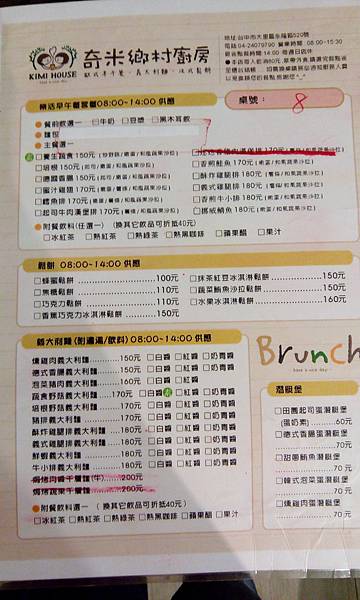 KIMI HOUSE
奇米鄉村廚房
歐式早午餐、義大利麵、法式鬆餅
地址:台中市大里區永隆路520號
電話:04-24079790 營業時間:08:00~15:30
樂活早午餐餐點08:00~14:00 供應
桌號: 8
◆餐前飲選一 □牛奶 □豆漿 □黑木耳飲
◆麵包
◆主餐選一
□養生蔬食150元
□培根150元
□德國香腸150元
□蜜汁雞腿170元
□鱈魚排170元
□起司牛肉漢堡排170元
□香煎鮭魚170元
□酥炸雞腿排180元
□義式雞腿排180元
□香煎牛小排180元
□挪威鯖魚180元
◆附餐飲料(任選一) (換其它飲品可折抵40元)
□冰紅茶 □熱紅茶 □熱綠茶 □熱黑咖啡 □蘋果醋 □果汁
鬆餅 08:00~14:00 供應
□蜂蜜鬆餅 100元
□黑糖鬆餅 110元
□巧克力鬆餅 110元
□香蕉巧克力冰淇淋鬆餅 150元
□抹茶紅豆冰淇淋鬆餅 150元
□蔬菜鮪魚沙拉鬆餅 150元
□水果冰淇淋鬆餅 160元
義大利麵(附濃湯/飲料)08:00~14:00 供應
燻雞肉義大利麵 150元 □白醬 □紅醬 □奶青醬
德式香腸義大利麵 150元 □白醬 □紅醬 □奶青醬
泡菜豬肉義大利麵 160元 □白醬 □紅醬
蔬食野菇義大利麵 170元 □白醬 □紅醬 □奶青醬
培根野菇義大利麵 170元 □白醬 □紅醬 □奶青醬
豬排義大利麵 170元 □白醬 □紅醬 □奶青醬
酥炸雞腿排義大利麵 180元 □白醬 □紅醬 □奶青醬
義式雞腿排義大利麵 180元 □白醬 □紅醬 □奶青醬
鮮蝦義大利麵 180元 □白醬 □紅醬 □奶青醬
牛小排義大利麵 180元 □白醬 □紅醬 □奶青醬
焗烤肉醬千層麵(牛) 200元
焗烤蔬果千層麵 200元
◆附餐飲料選一 (換其它飲品可折抵40元)
□冰紅茶 □熱紅茶 □熱綠茶 □熱黑咖啡 □蘋果醋 □果汁
Brunch
潛艇堡
□田園起司蛋潛艇堡
(蛋奶素) 60元
□德式香腸蛋潛艇堡
70元
□甜蔥鮪魚蛋潛艇堡
70元
□韓式泡菜蛋潛艇堡
70元
□燻雞肉蛋潛艇堡
70元